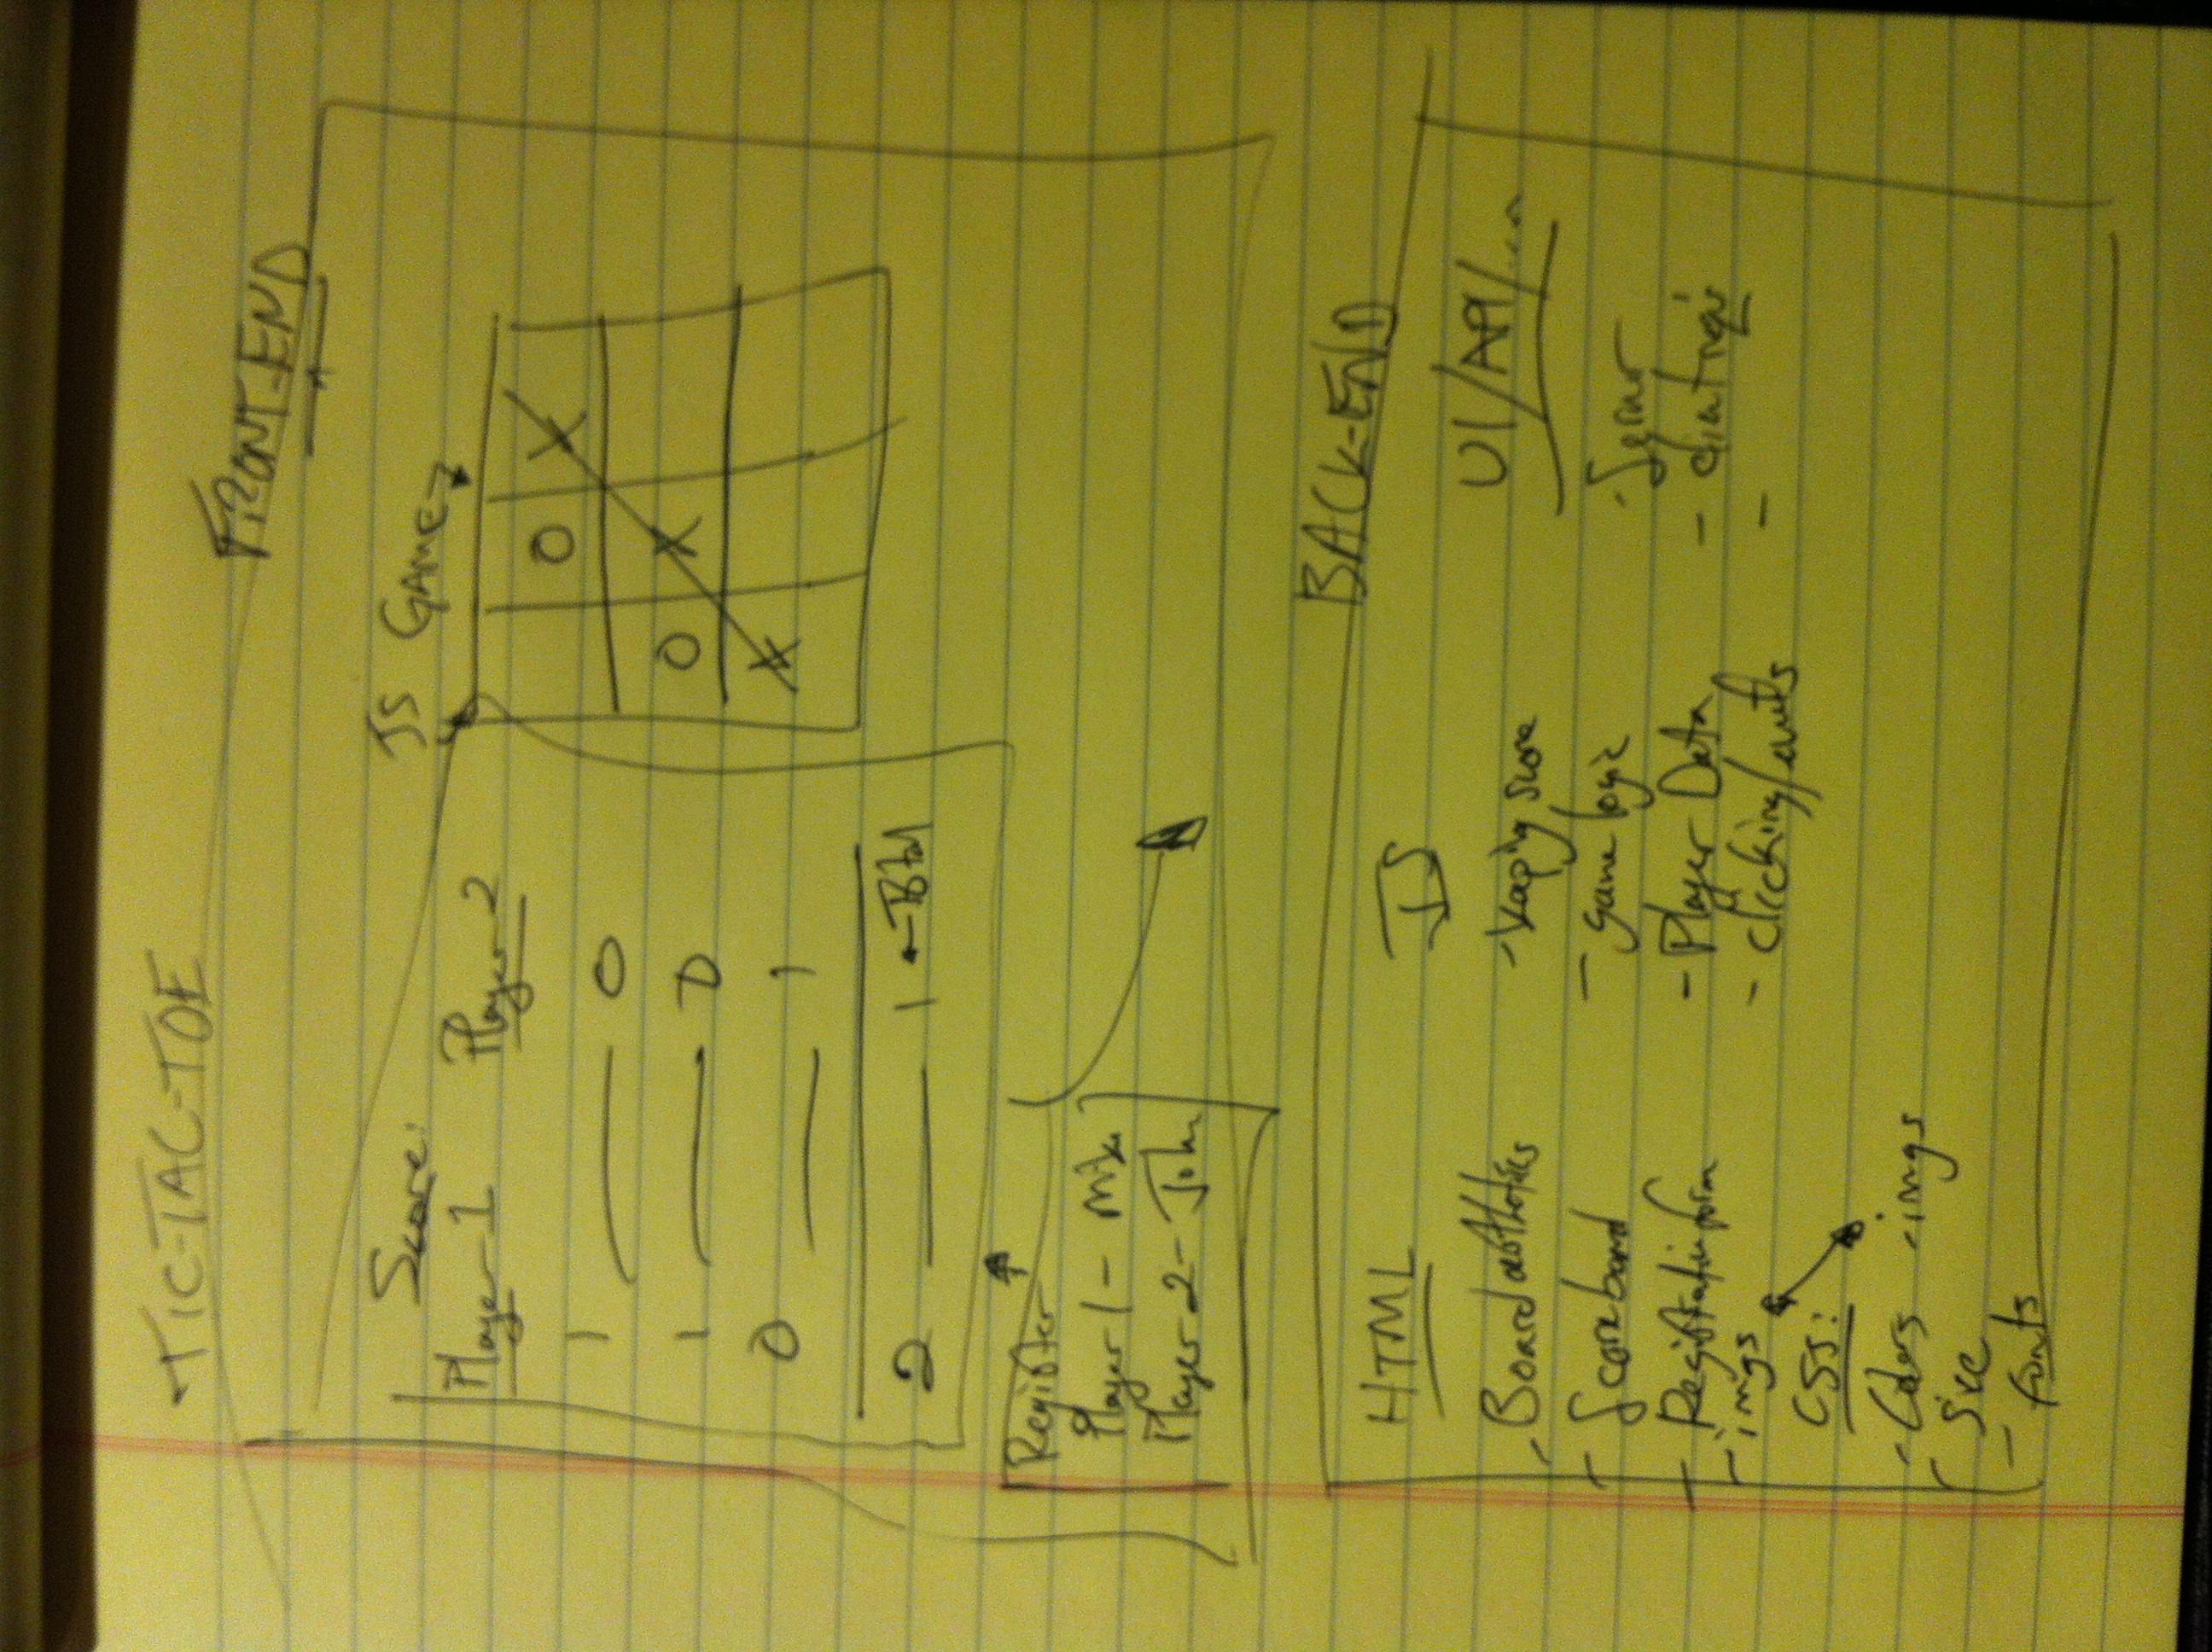 TIC-TAC-TOE
FRONT-END
Score:
Player 1 Player 2
1 — 0
1 — 0
0 — 1
2 — 1 ← Total
JS GAME
O X
O X
X
Register
Player 1 - Mike
Player 2 - John
BACK-END
HTML
- Board aesthetics
- Scoreboard
- Registration form
- imgs
CSS:
- Colors - imgs
- Size
- fonts
JS
- Keeping score
- game logic
- Player Data
- clicking/events
UI/API/...
- Server
- client
-